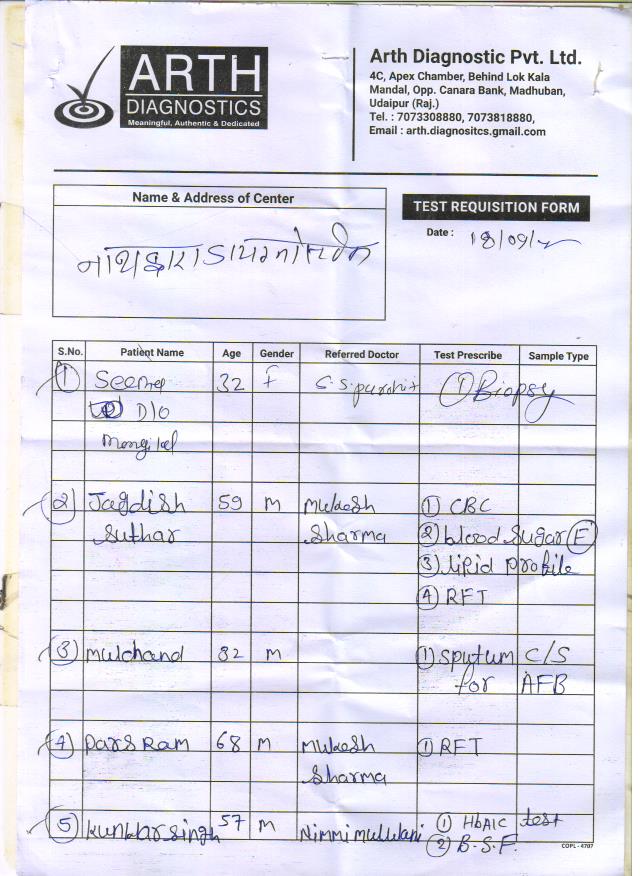 ARTH
DIAGNOSTICS
Meaningful, Authentic & Dedicated
Arth Diagnostic Pvt. Ltd.
4C, Apex Chamber, Behind Lok Kala
Mandal, Opp. Canara Bank, Madhuban,
Udaipur (Raj.)
Tel. : 7073308880, 7073818880,
Email : arth.diagnositcs.gmail.com
Name & Address of Center
TEST REQUISITION FORM
Date : 18/09/
S.No. Patient Name Age Gender Referred Doctor Test Prescribe Sample Type
1 Seema 32 F S.S. purohit 1 Biopsy
D/O
2 Jagdish 59 M Mukesh 1 CBC
Suthar Sharma 2 blood sugar F
3 lipid profile
4 RFT
3 mulchand 82 M 1 Sputum C/S
for AFB
4 Pars Ram 68 M Mukesh 1 RFT
Sharma
5 Kunbar Singh 57 M 1 HbA1C test
2 B.S.F.
COPL - 4707